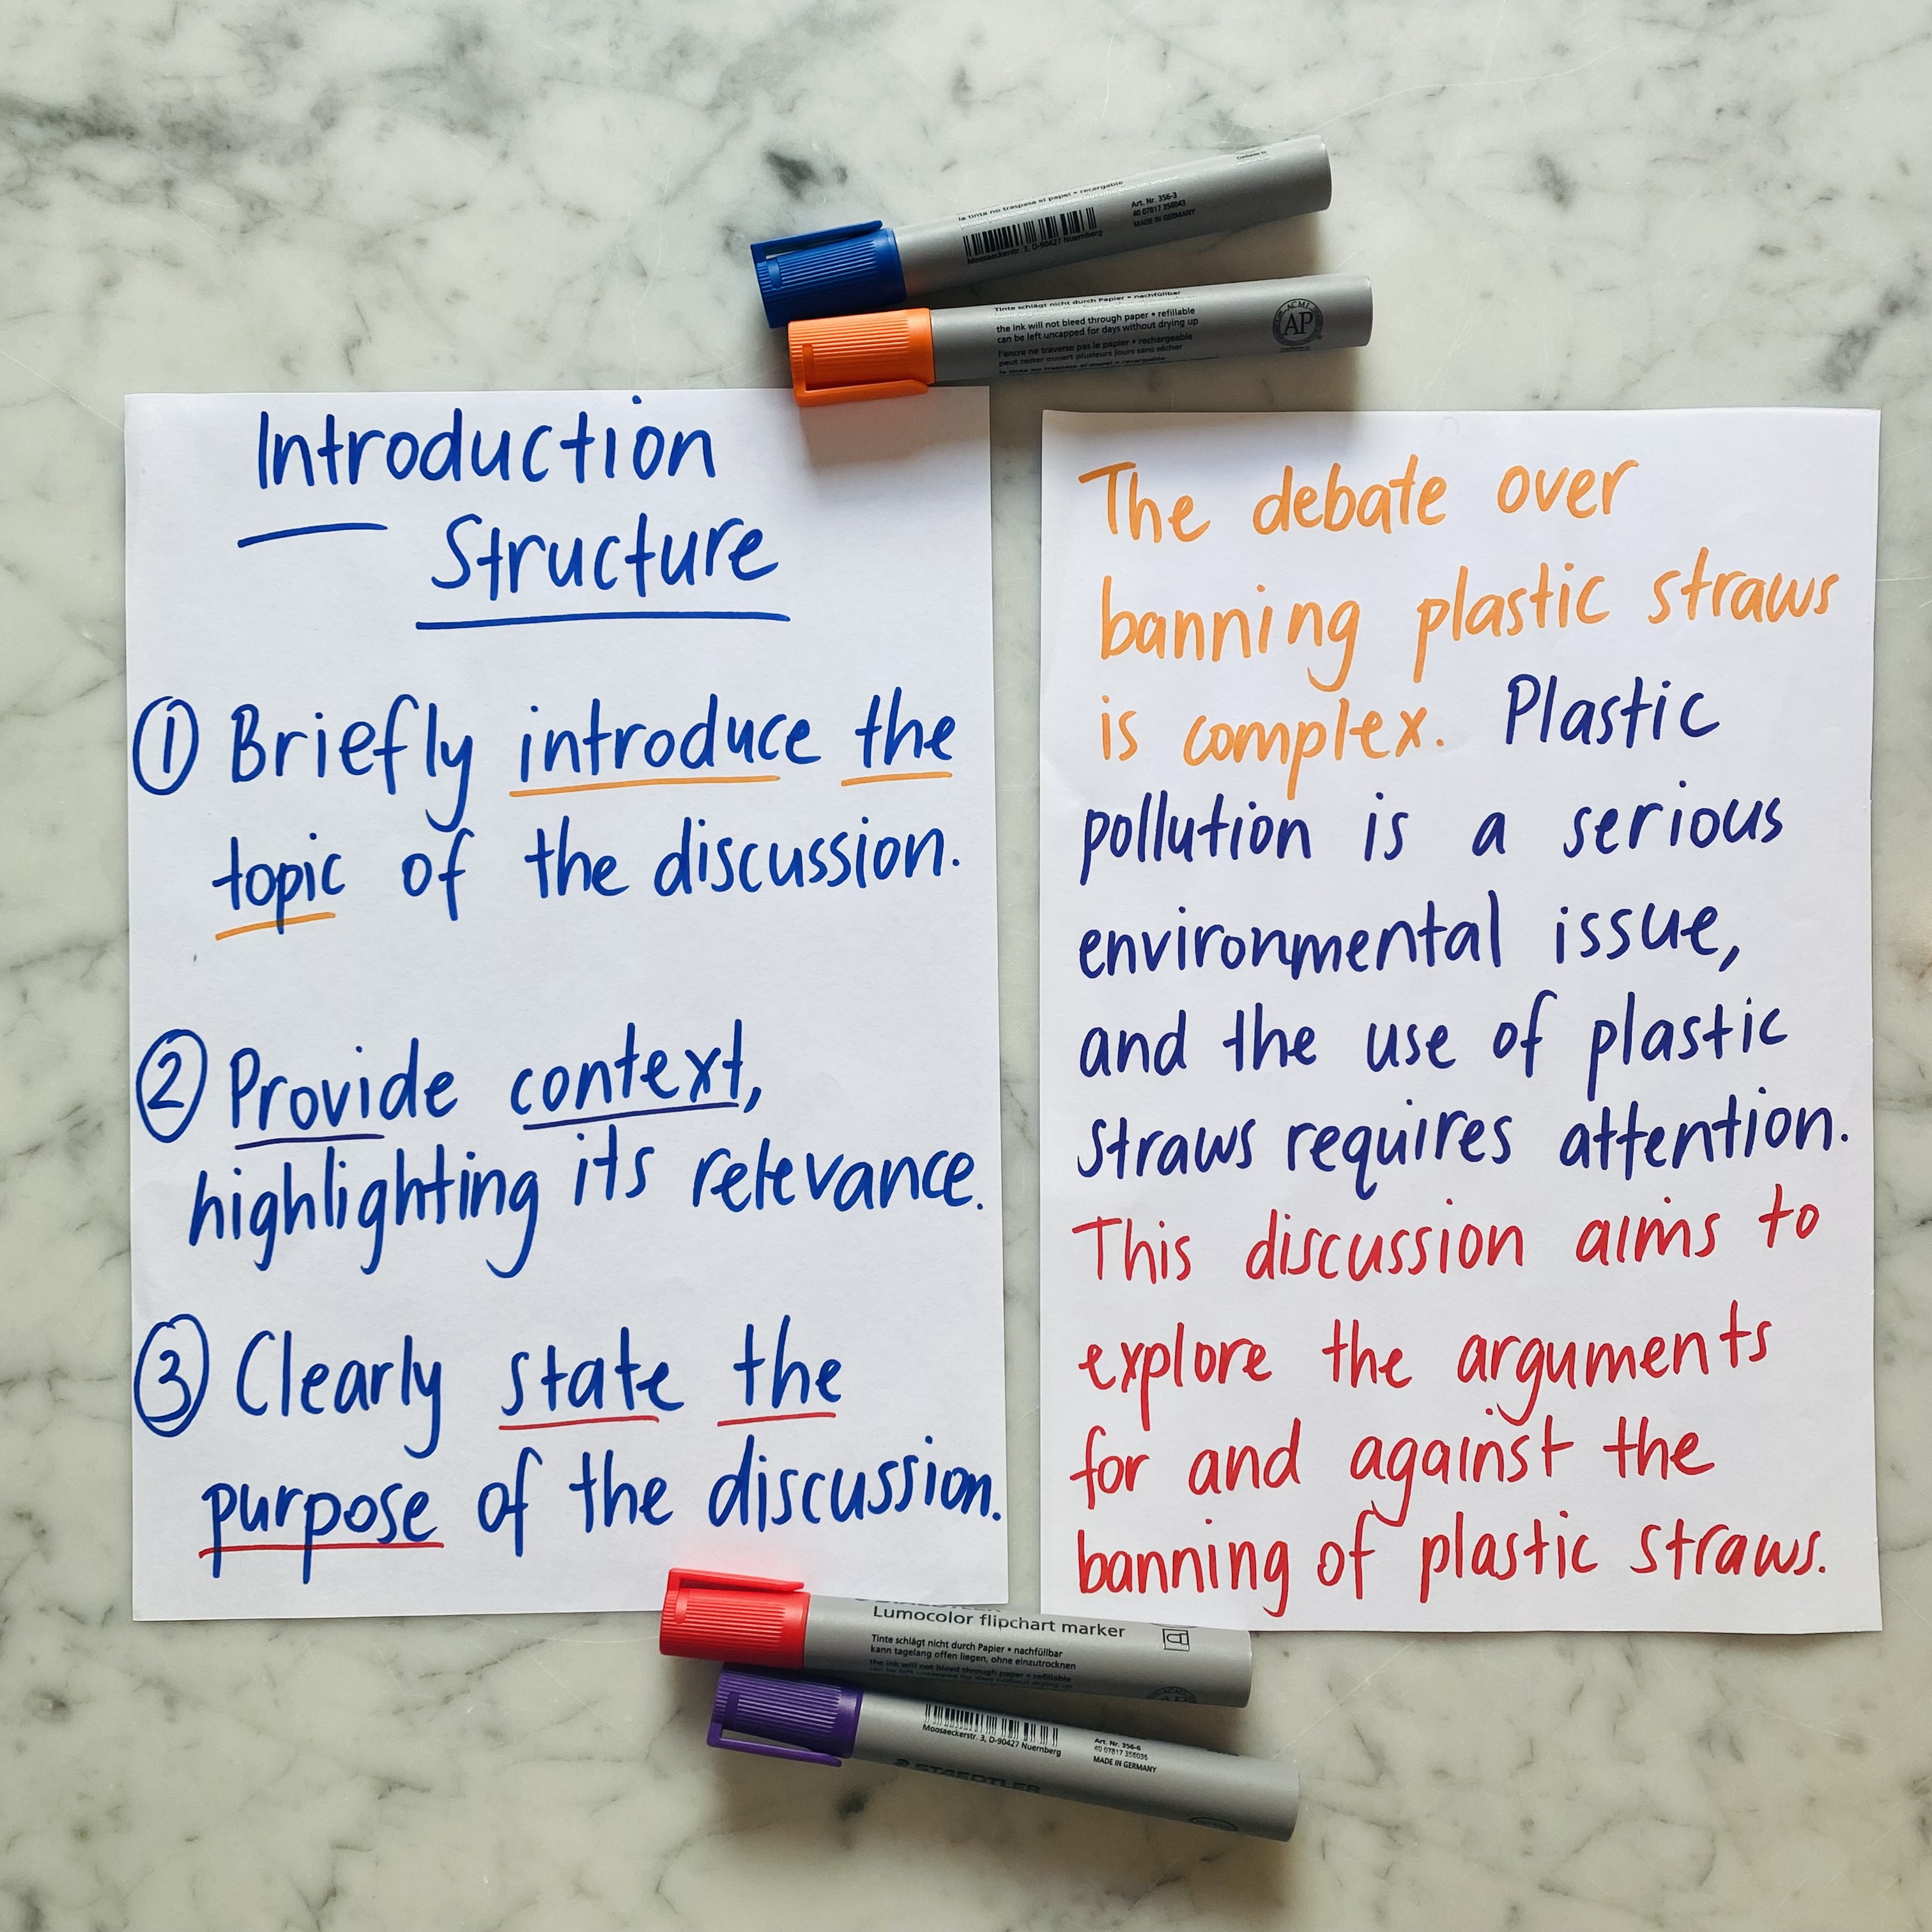 la tinta no traspasa el papel • recargable
Art. Nr. 356-3
40 07817 356043
MADE IN GERMANY
Moosaeckerstr. 3, D-90427 Nuernberg
Tinte schlägt nicht durch Papier • nachfüllbar
the ink will not bleed through paper • refillable
can be left uncapped for days without drying up
l'encre ne traverse pas le papier • rechargeable
peut rester ouvert plusieurs jours sans sécher
la tinta no traspasa el papel • recargable
ACMI
AP
Introduction
Structure
① Briefly introduce the
topic of the discussion.
② Provide context,
highlighting its relevance.
③ Clearly state the
purpose of the discussion.
The debate over
banning plastic straws
is complex. Plastic
pollution is a serious
environmental issue,
and the use of plastic
straws requires attention.
This discussion aims to
explore the arguments
for and against the
banning of plastic straws.
STAEDTLER
Lumocolor flipchart marker
Tinte schlägt nicht durch Papier • nachfüllbar
kann tagelang offen liegen, ohne einzutrocknen
the ink will not bleed through paper • refillable
can be left uncapped for days without drying up
ACMI
AP
Moosaeckerstr. 3, D-90427 Nuernberg
Art. Nr. 356-6
40 07817 356036
MADE IN GERMANY
STAEDTLER